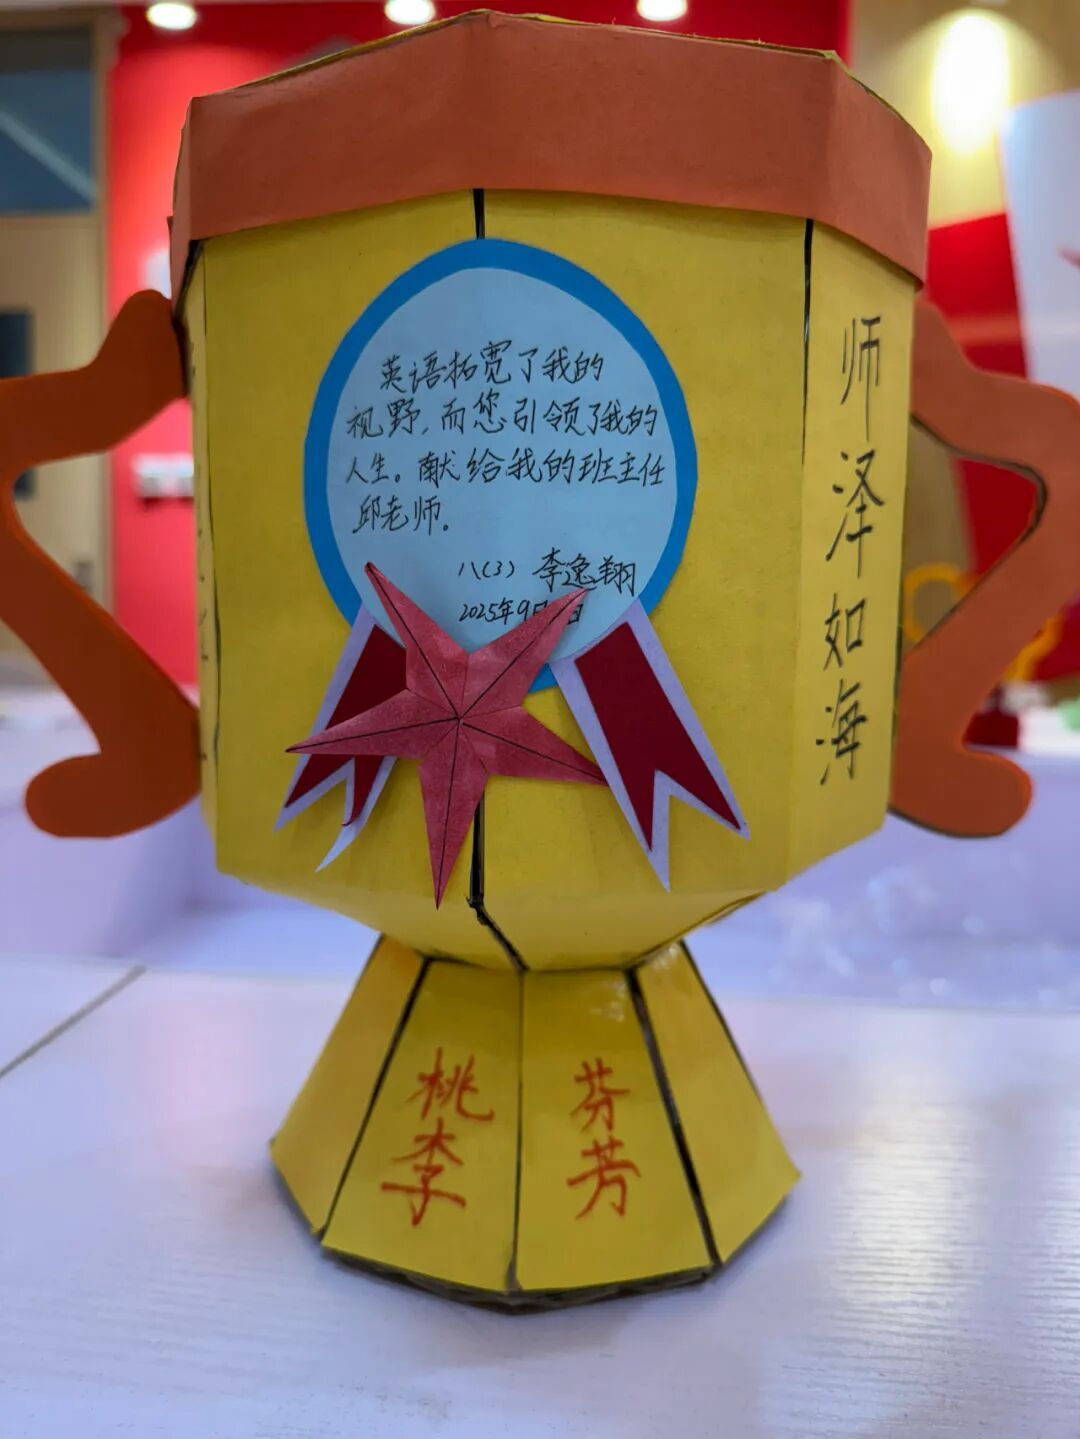 英语拓宽了我的
视野,而您引领了我的
人生。献给我的班主任
邱老师.
八(3) 李逸翔
2025年9月 日
师泽如海
桃李
芬芳